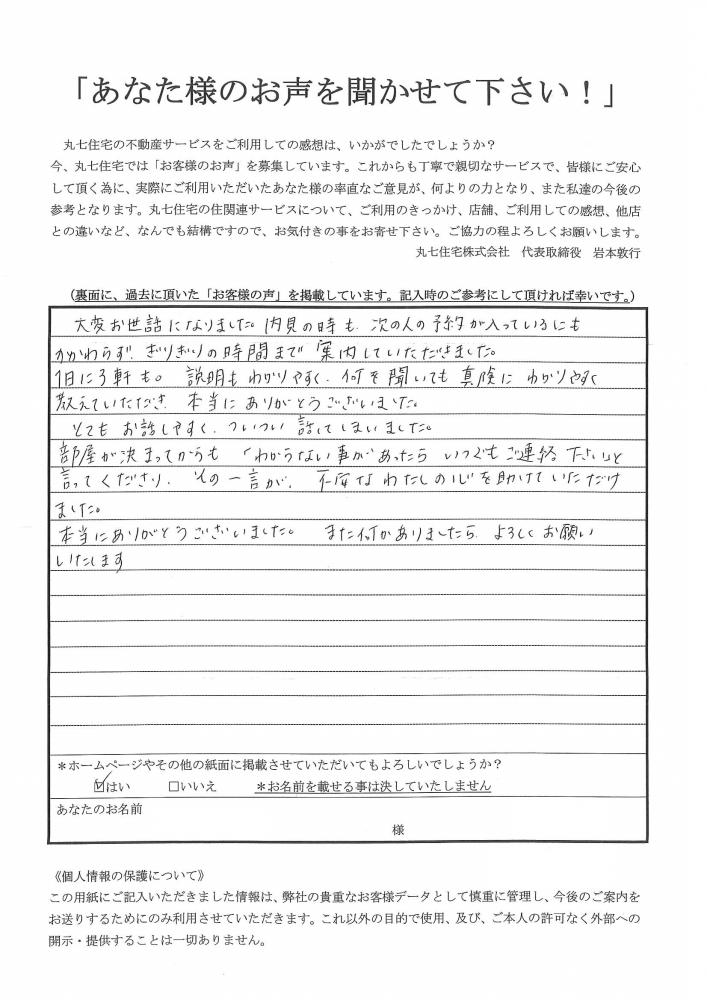 「あなた様のお声を聞かせて下さい！」
丸七住宅の不動産サービスをご利用しての感想は、いかがでしたでしょうか？
今、丸七住宅では「お客様のお声」を募集しています。これからも丁寧で親切なサービスで、皆様にご安心
して頂く為に、実際にご利用いただいたあなた様の率直なご意見が、何よりの力となり、また私達の今後の
参考となります。丸七住宅の住関連サービスについて、ご利用のきっかけ、店舗、ご利用しての感想、他店
との違いなど、なんでも結構ですので、お気付きの事をお寄せ下さい。ご協力の程よろしくお願いします。
丸七住宅株式会社　代表取締役　岩本敦行
（裏面に、過去に頂いた「お客様の声」を掲載しています。記入時のご参考にして頂ければ幸いです。）
大変お世話になりました。内見の時も、次の人の予約が入っているにも
かかわらず、ぎりぎりの時間まで案内していただきました。
1日に3軒も。説明もわかりやすく、何を聞いても真険にわかりやすく
教えていただき、本当にありがとうございました。
とてもお話しやすく、ついつい話してしまいました。
部屋が決まってからも「わからない事があったらいつでもご連絡下さい」と
言ってくださり、その一言が、不安なわたしの心を助けていただけ
ました。
本当にありがとうございました。また何かありましたら、よろしくお願い
いたします
＊ホームページやその他の紙面に掲載させていただいてもよろしいでしょうか？
☑はい　□いいえ　＊お名前を載せる事は決していたしません
あなたのお名前
様
《個人情報の保護について》
この用紙にご記入いただきました情報は、弊社の貴重なお客様データとして慎重に管理し、今後のご案内を
お送りするためにのみ利用させていただきます。これ以外の目的で使用、及び、ご本人の許可なく外部への
開示・提供することは一切ありません。